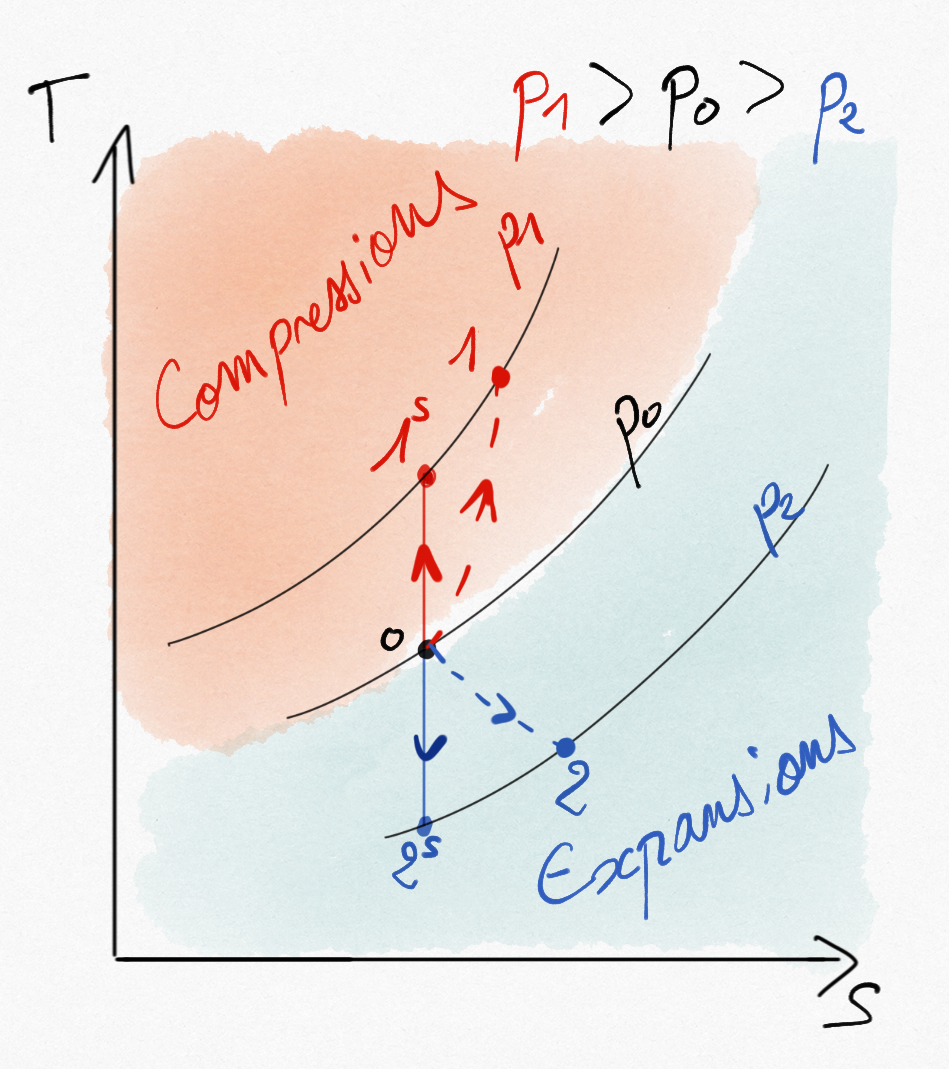 T
p1 > p0 > p2
Compressions
p1
1
1s
p0
p2
0
2
2s
Expansions
S